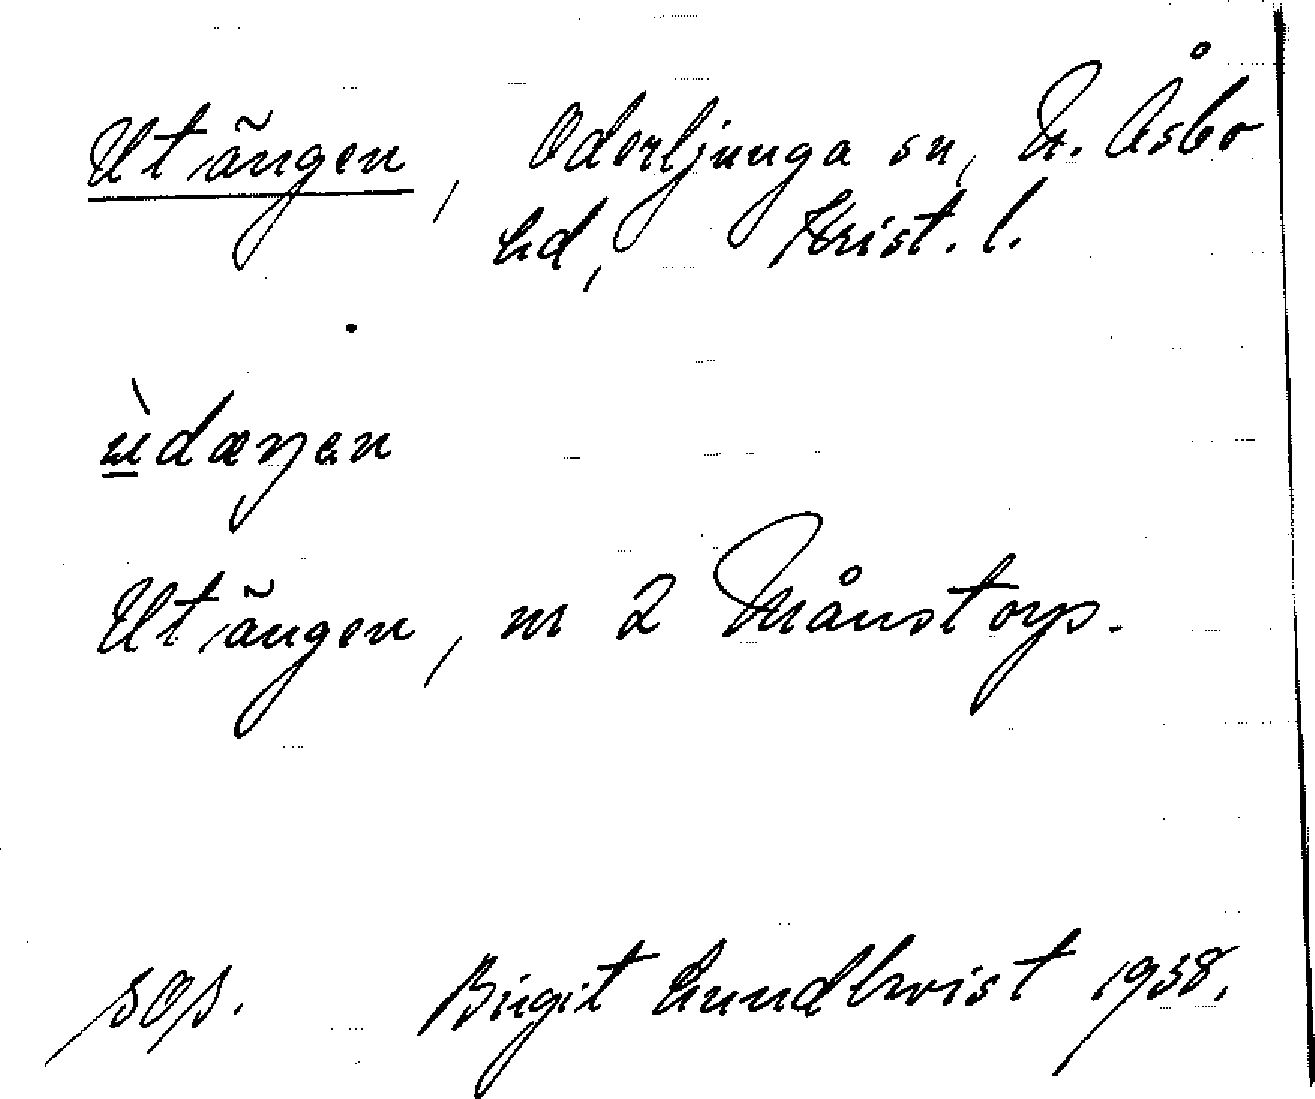 Utängen, Oderljunga sn, N. Åsbo
hd, Krist. l.
ùdæŋen
Utängen, nr 2 Månstorp.
sÖs. Birgit Lundkvist 1938.